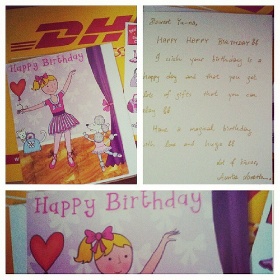 DHL
Happy Birthday
HAPPY HAPPY BIRTHDAY
I wish your birthday is a
happy day and that you get
lots of gifts that you can
Have a magical birthday
with love and hugs
lot of kisses,
Happy Birthday